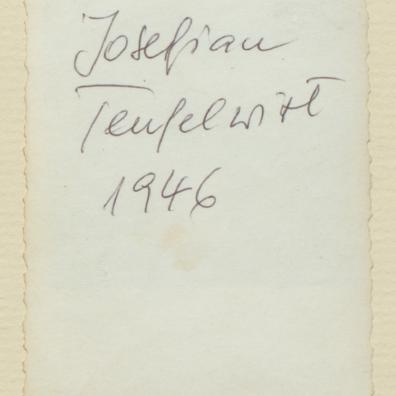 Josefiau
Teufelwirt
1946